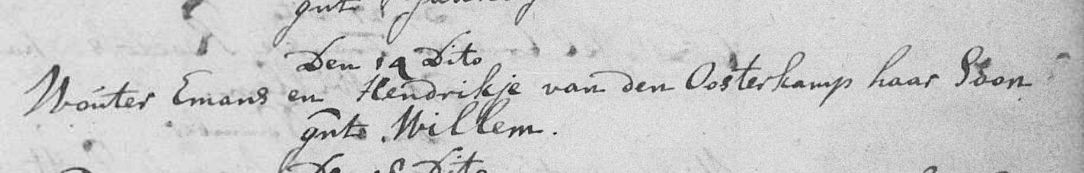 Den 14 Dito
Wouter Emans en Hendrikje van den Oosterkamp haar Soon
gnt Willem.
Dito